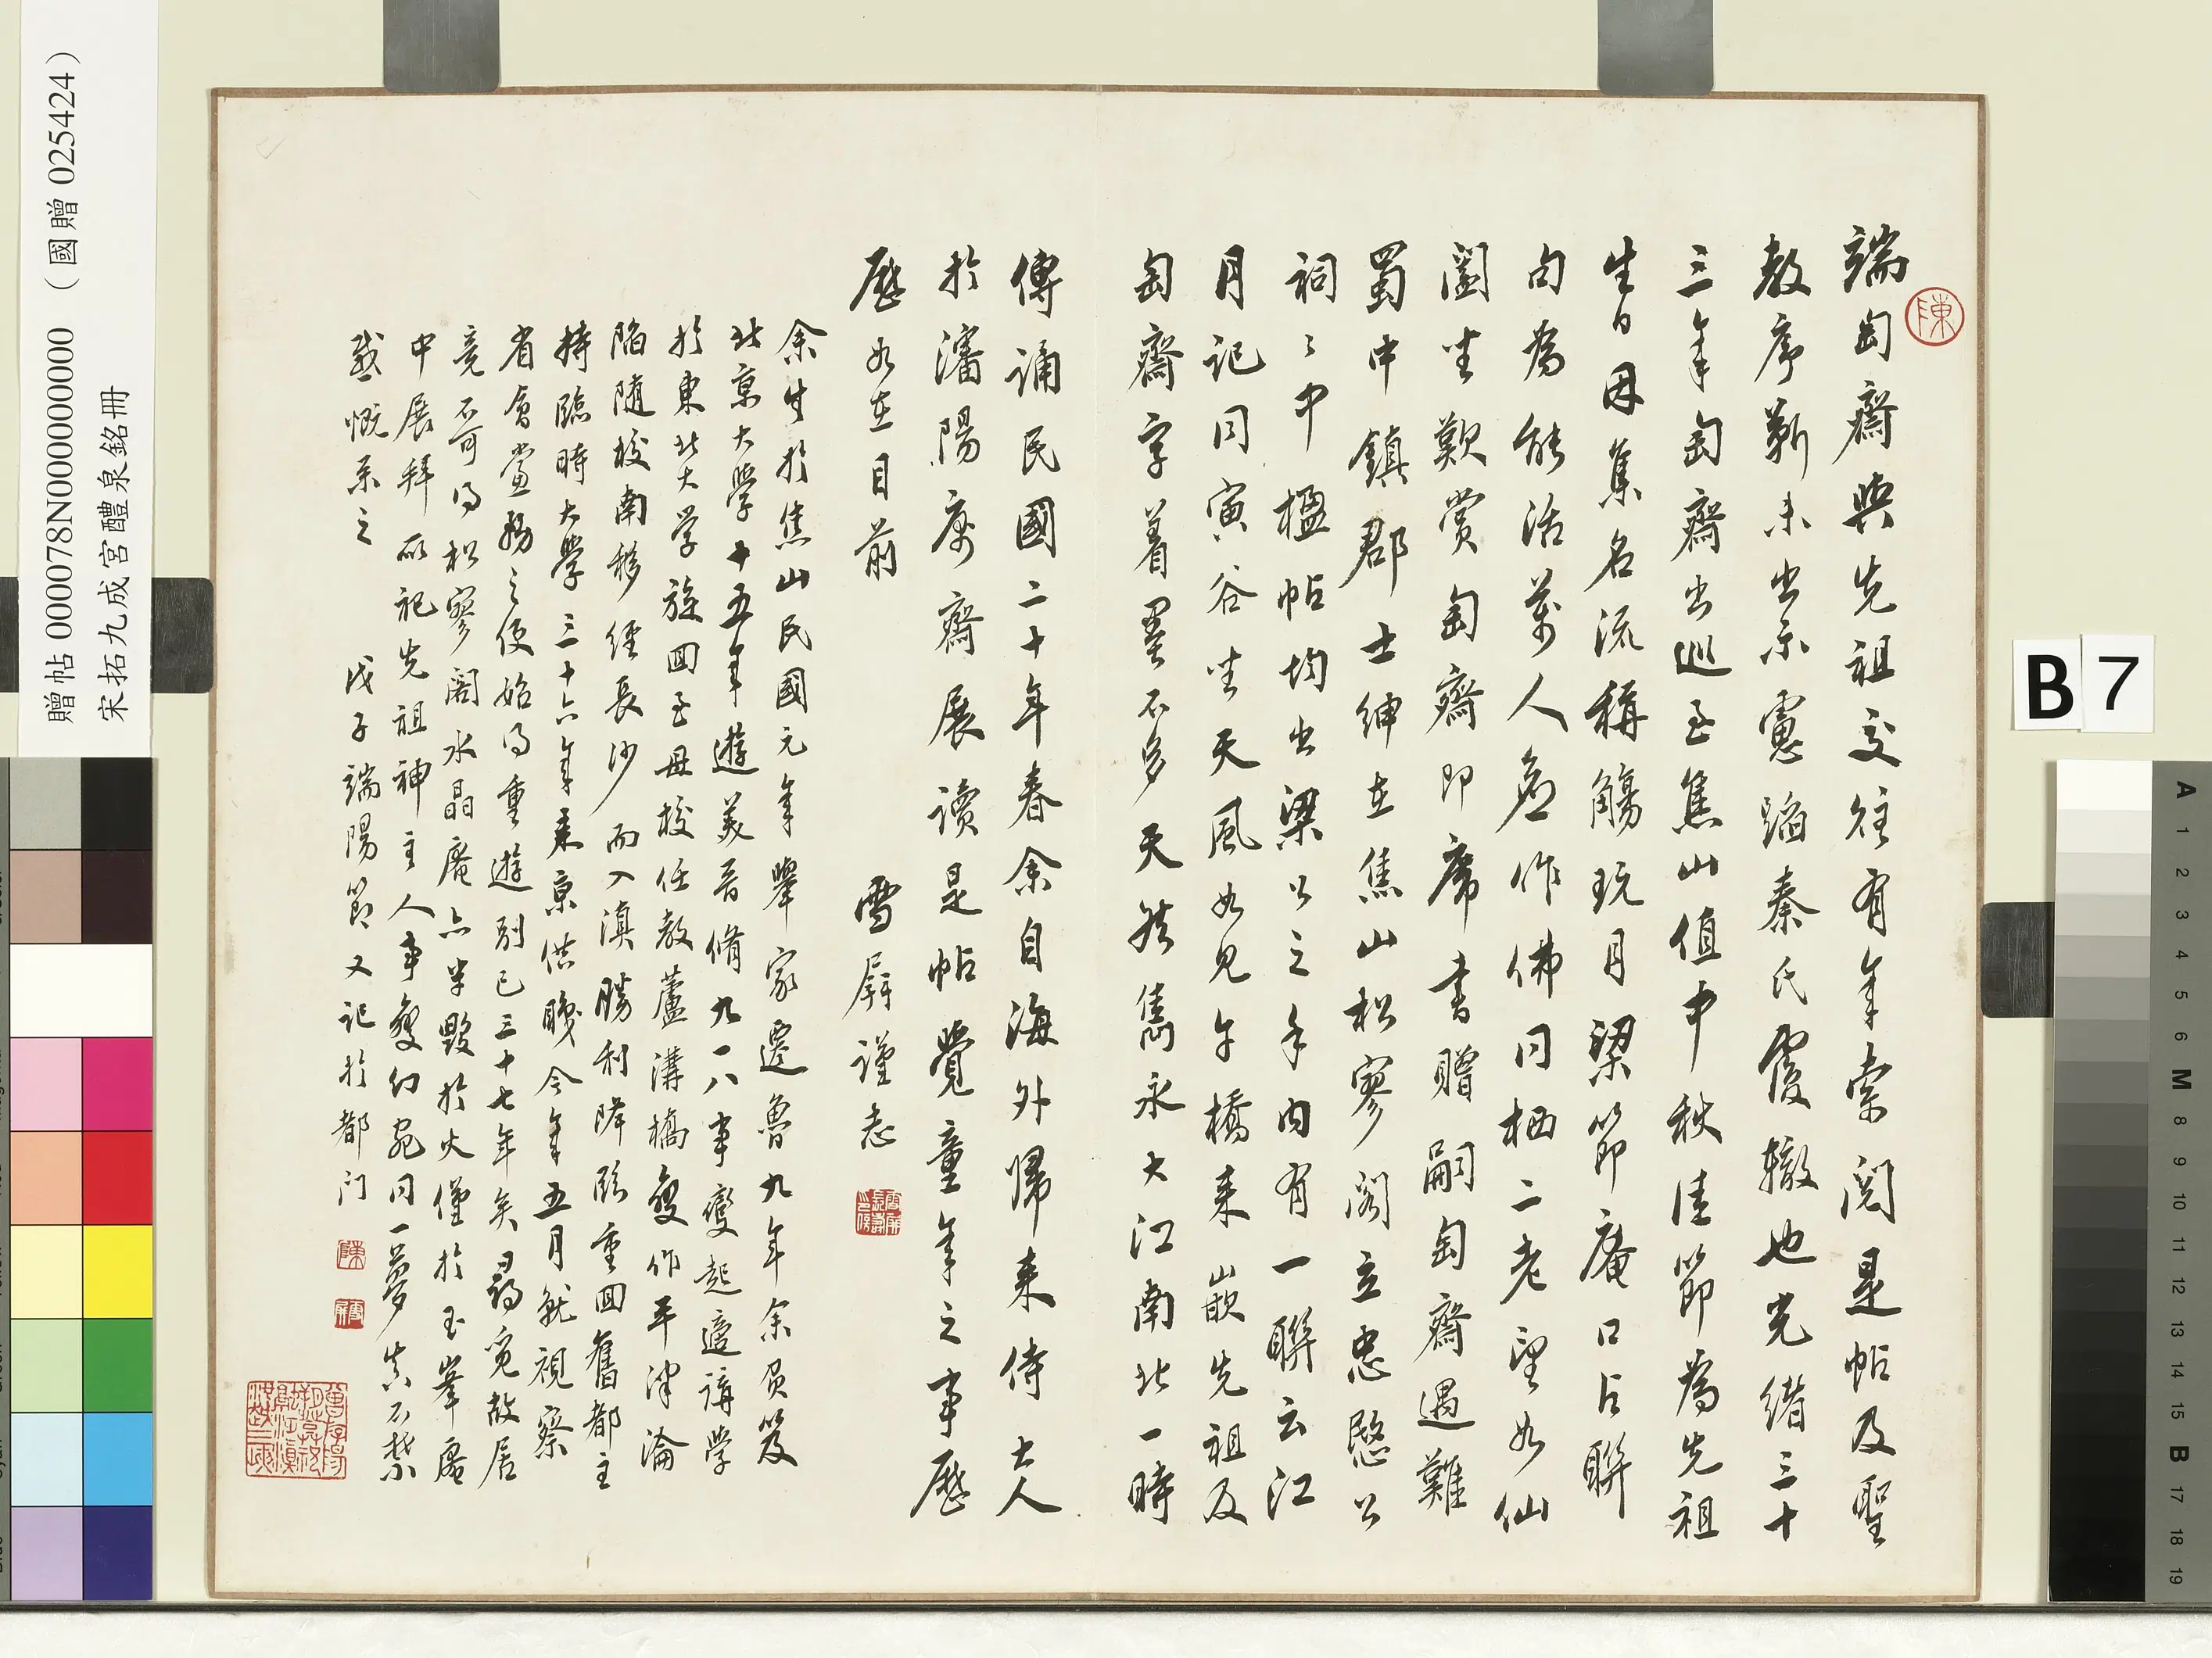 端匋齋與先祖交往有年索閱是帖及聖
教序靳未出示慮蹈秦氏覆轍也光緒三十
三年匋齋出巡至焦山值中秋佳節為先祖
生日因集名流稱觴玩月梁節庵口占聯
句為能活萬人應作佛同栖二老望如仙
闔坐歎賞匋齋即席書贈嗣匋齋遇難
蜀中鎮郡士紳在焦山松寥閣立忠愍公
祠〻中楹帖均出梁公之手內有一聯云江
月記同寅谷坐天風如見午橋來嵌先祖及
匋齋字着墨不多天然雋永大江南北一時
傳誦民國二十年春余自海外歸來侍大人
於瀋陽寓齋展讀是帖覺童年之事歷
歷如在目前
雪屏謹志
余生於焦山民國元年舉家遷魯九年余負笈
北京大學十五年遊美晉脩九一八事變起適講學
於東北大學旋回至母校任教蘆溝橋變作平津淪
陷隨校南移經長沙而入滇勝利降臨重回舊都主
持臨時大學三十六年來京供職今年五月就視察
省會黨務之便始得重遊別已三十七年矣尋覓故居
竟不可得松寥閣水晶庵亦半毀於火僅於玉峯庵
中展拜所祀先祖神主人事變幻宛同一夢真不禁
感慨系之
戊子端陽節又記於都門
陳
陳
雪屏
贈帖 000078N000000000 （國贈 025424）
宋拓九成宮醴泉銘冊
B 7
A 1 2 3 4 5 6 M 8 9 10 11 12 13 14 15 B 17 18 19